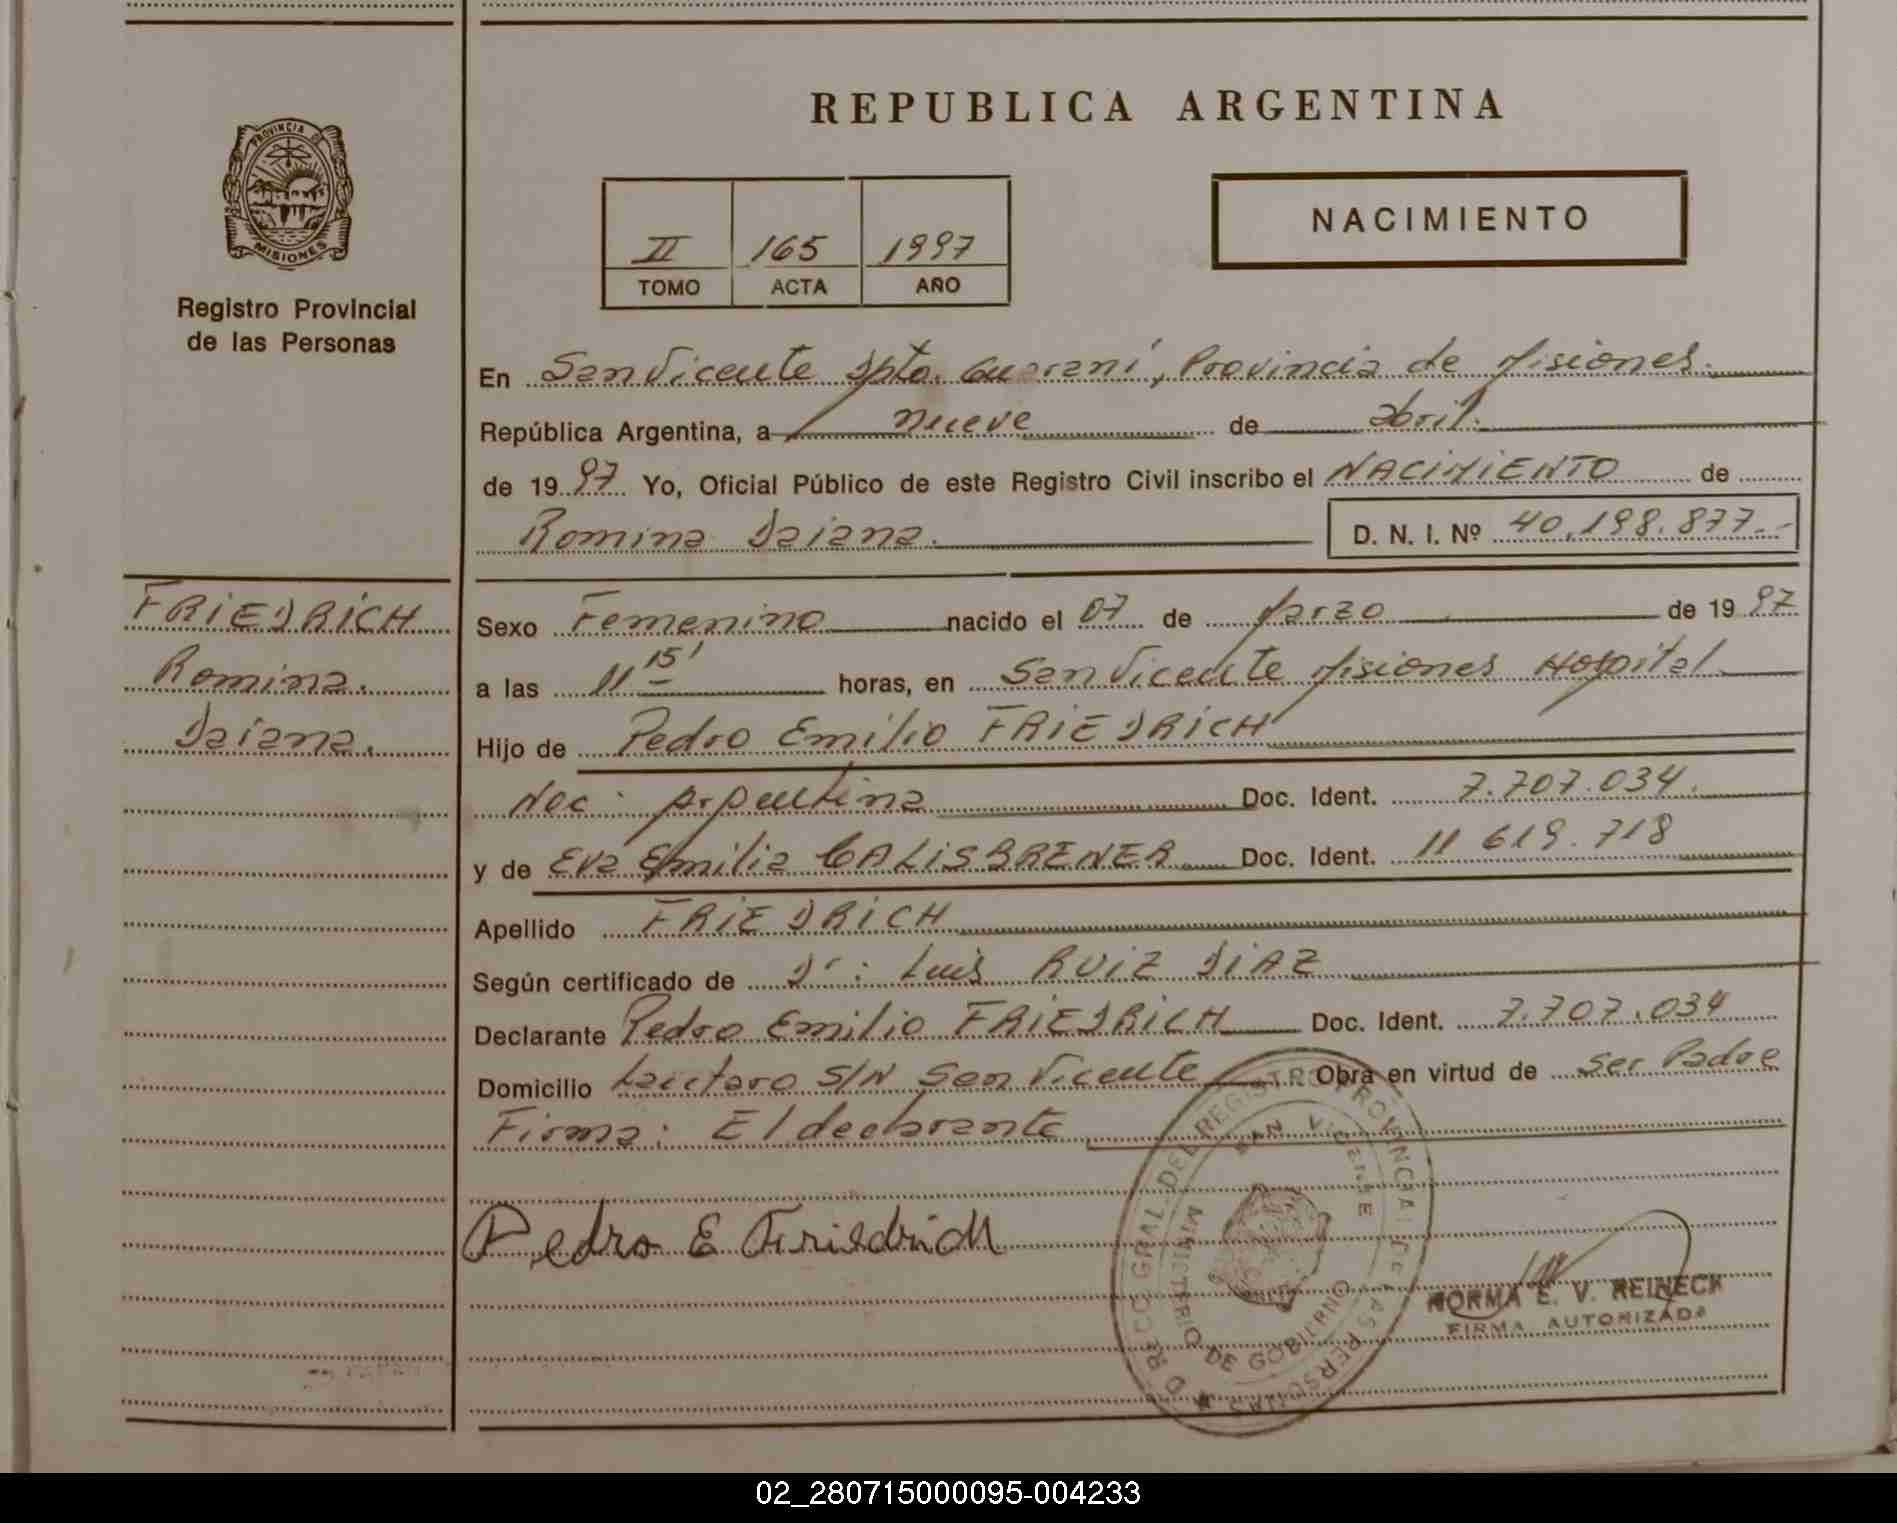 REPUBLICA ARGENTINA
PROVINCIA DE
MISIONES
Registro Provincial
de las Personas
II 165 1997
TOMO ACTA AÑO
NACIMIENTO
En San Vicente Dpto. Guaraní, Provincia de Misiones.
República Argentina, a nueve de abril.
de 1997 Yo, Oficial Público de este Registro Civil inscribo el NACIMIENTO de
Romina Daiana. D. N. I. Nº 40.198.877.-
FRIEDRICH
Romina.
Daiana.
Sexo Femenino nacido el 07 de Marzo de 1997
a las 11 15' horas, en San Vicente Misiones Hospital.
Hijo de Pedro Emilio FRIEDRICH
Nac: Argentina Doc. Ident. 7.707.034.
y de Eva Emilia GALISBRENER Doc. Ident. 11 619.718
Apellido FRIEDRICH
Según certificado de Dr: Luis RUIZ DIAZ
Declarante Pedro Emilio FRIEDRICH Doc. Ident. 7.707.034
Domicilio Lautaro S/N San Vicente Obra en virtud de ser Padre
Firma: El declarante
Pedro E Friedrich
DIRECC. GRAL. DEL REGISTRO PROVINCIAL DE LAS PERSONAS
SAN VICENTE
MINISTERIO DE GOBIERNO
NORMA E. V. REINECK
FIRMA AUTORIZADA
02_280715000095-004233